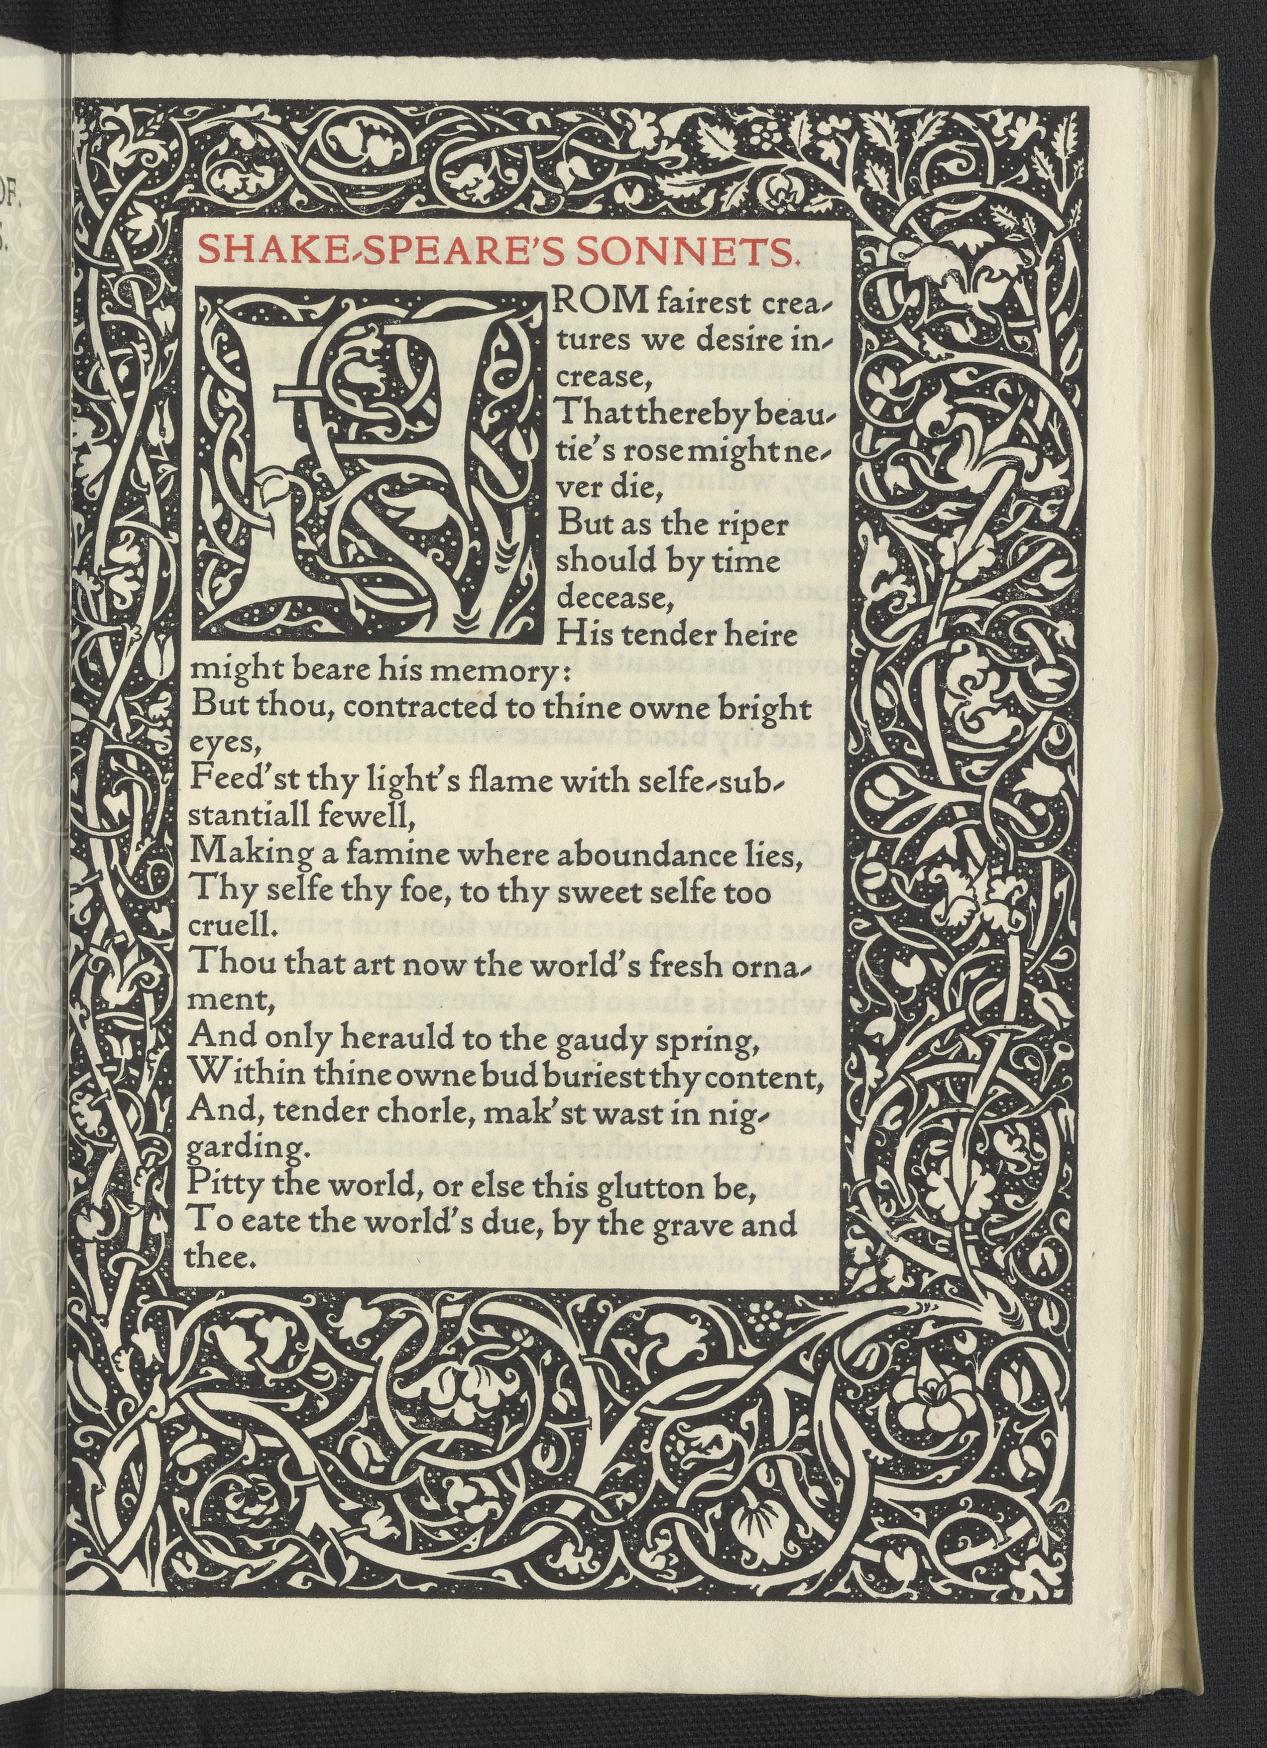 OF.
S.
SHAKE-SPEARE'S SONNETS.
FROM fairest crea-
tures we desire in-
crease,
That thereby beau-
tie's rose might ne-
ver die,
But as the riper
should by time
decease,
His tender heire
might beare his memory:
But thou, contracted to thine owne bright
eyes,
Feed'st thy light's flame with selfe-sub-
stantiall fewell,
Making a famine where aboundance lies,
Thy selfe thy foe, to thy sweet selfe too
cruell.
Thou that art now the world's fresh orna-
ment,
And only herauld to the gaudy spring,
Within thine owne bud buriest thy content,
And, tender chorle, mak'st wast in nig-
garding.
Pitty the world, or else this glutton be,
To eate the world's due, by the grave and
thee.